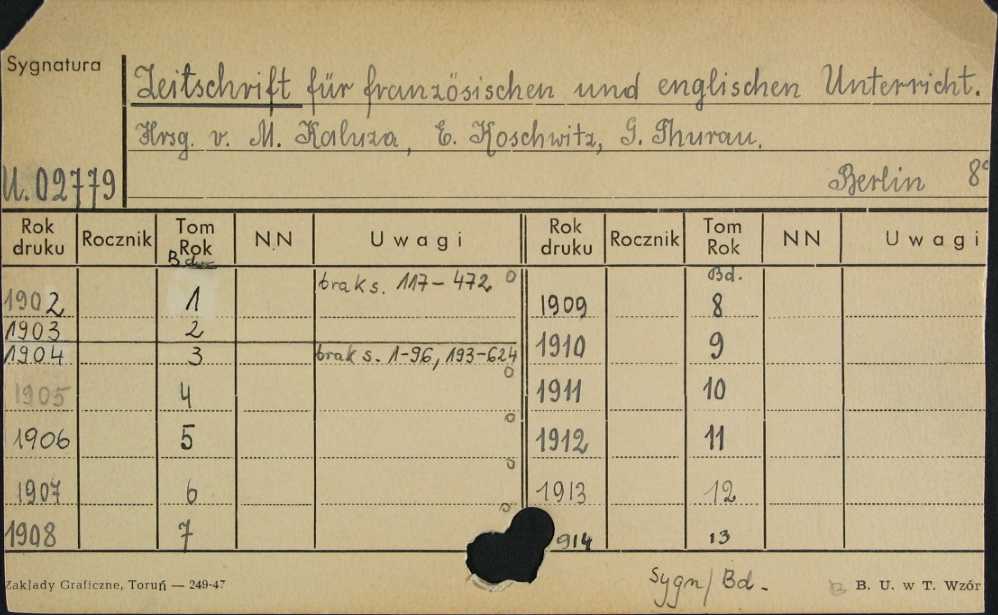 Sygnatura
Zeitschrift für französischen und englischen Unterricht.
Hrsg. v. M. Kaluza, E. Koschwitz, G. Thurau.
U. 02779
Berlin 8°
Rok druku Rocznik Tom Rok NN Uwagi Rok druku Rocznik Tom Rok NN Uwagi
Bd. Bd.
1902 1 brak s. 117-472 1909 8
1903 2
1904 3 brak s. 1-96, 193-624 1910 9
1905 4 1911 10
1906 5 1912 11
1907 6 1913 12
1908 7 914 13
Zakłady Graficzne, Toruń — 249-47
Sygn/Bd.
B. U. w T. Wzór